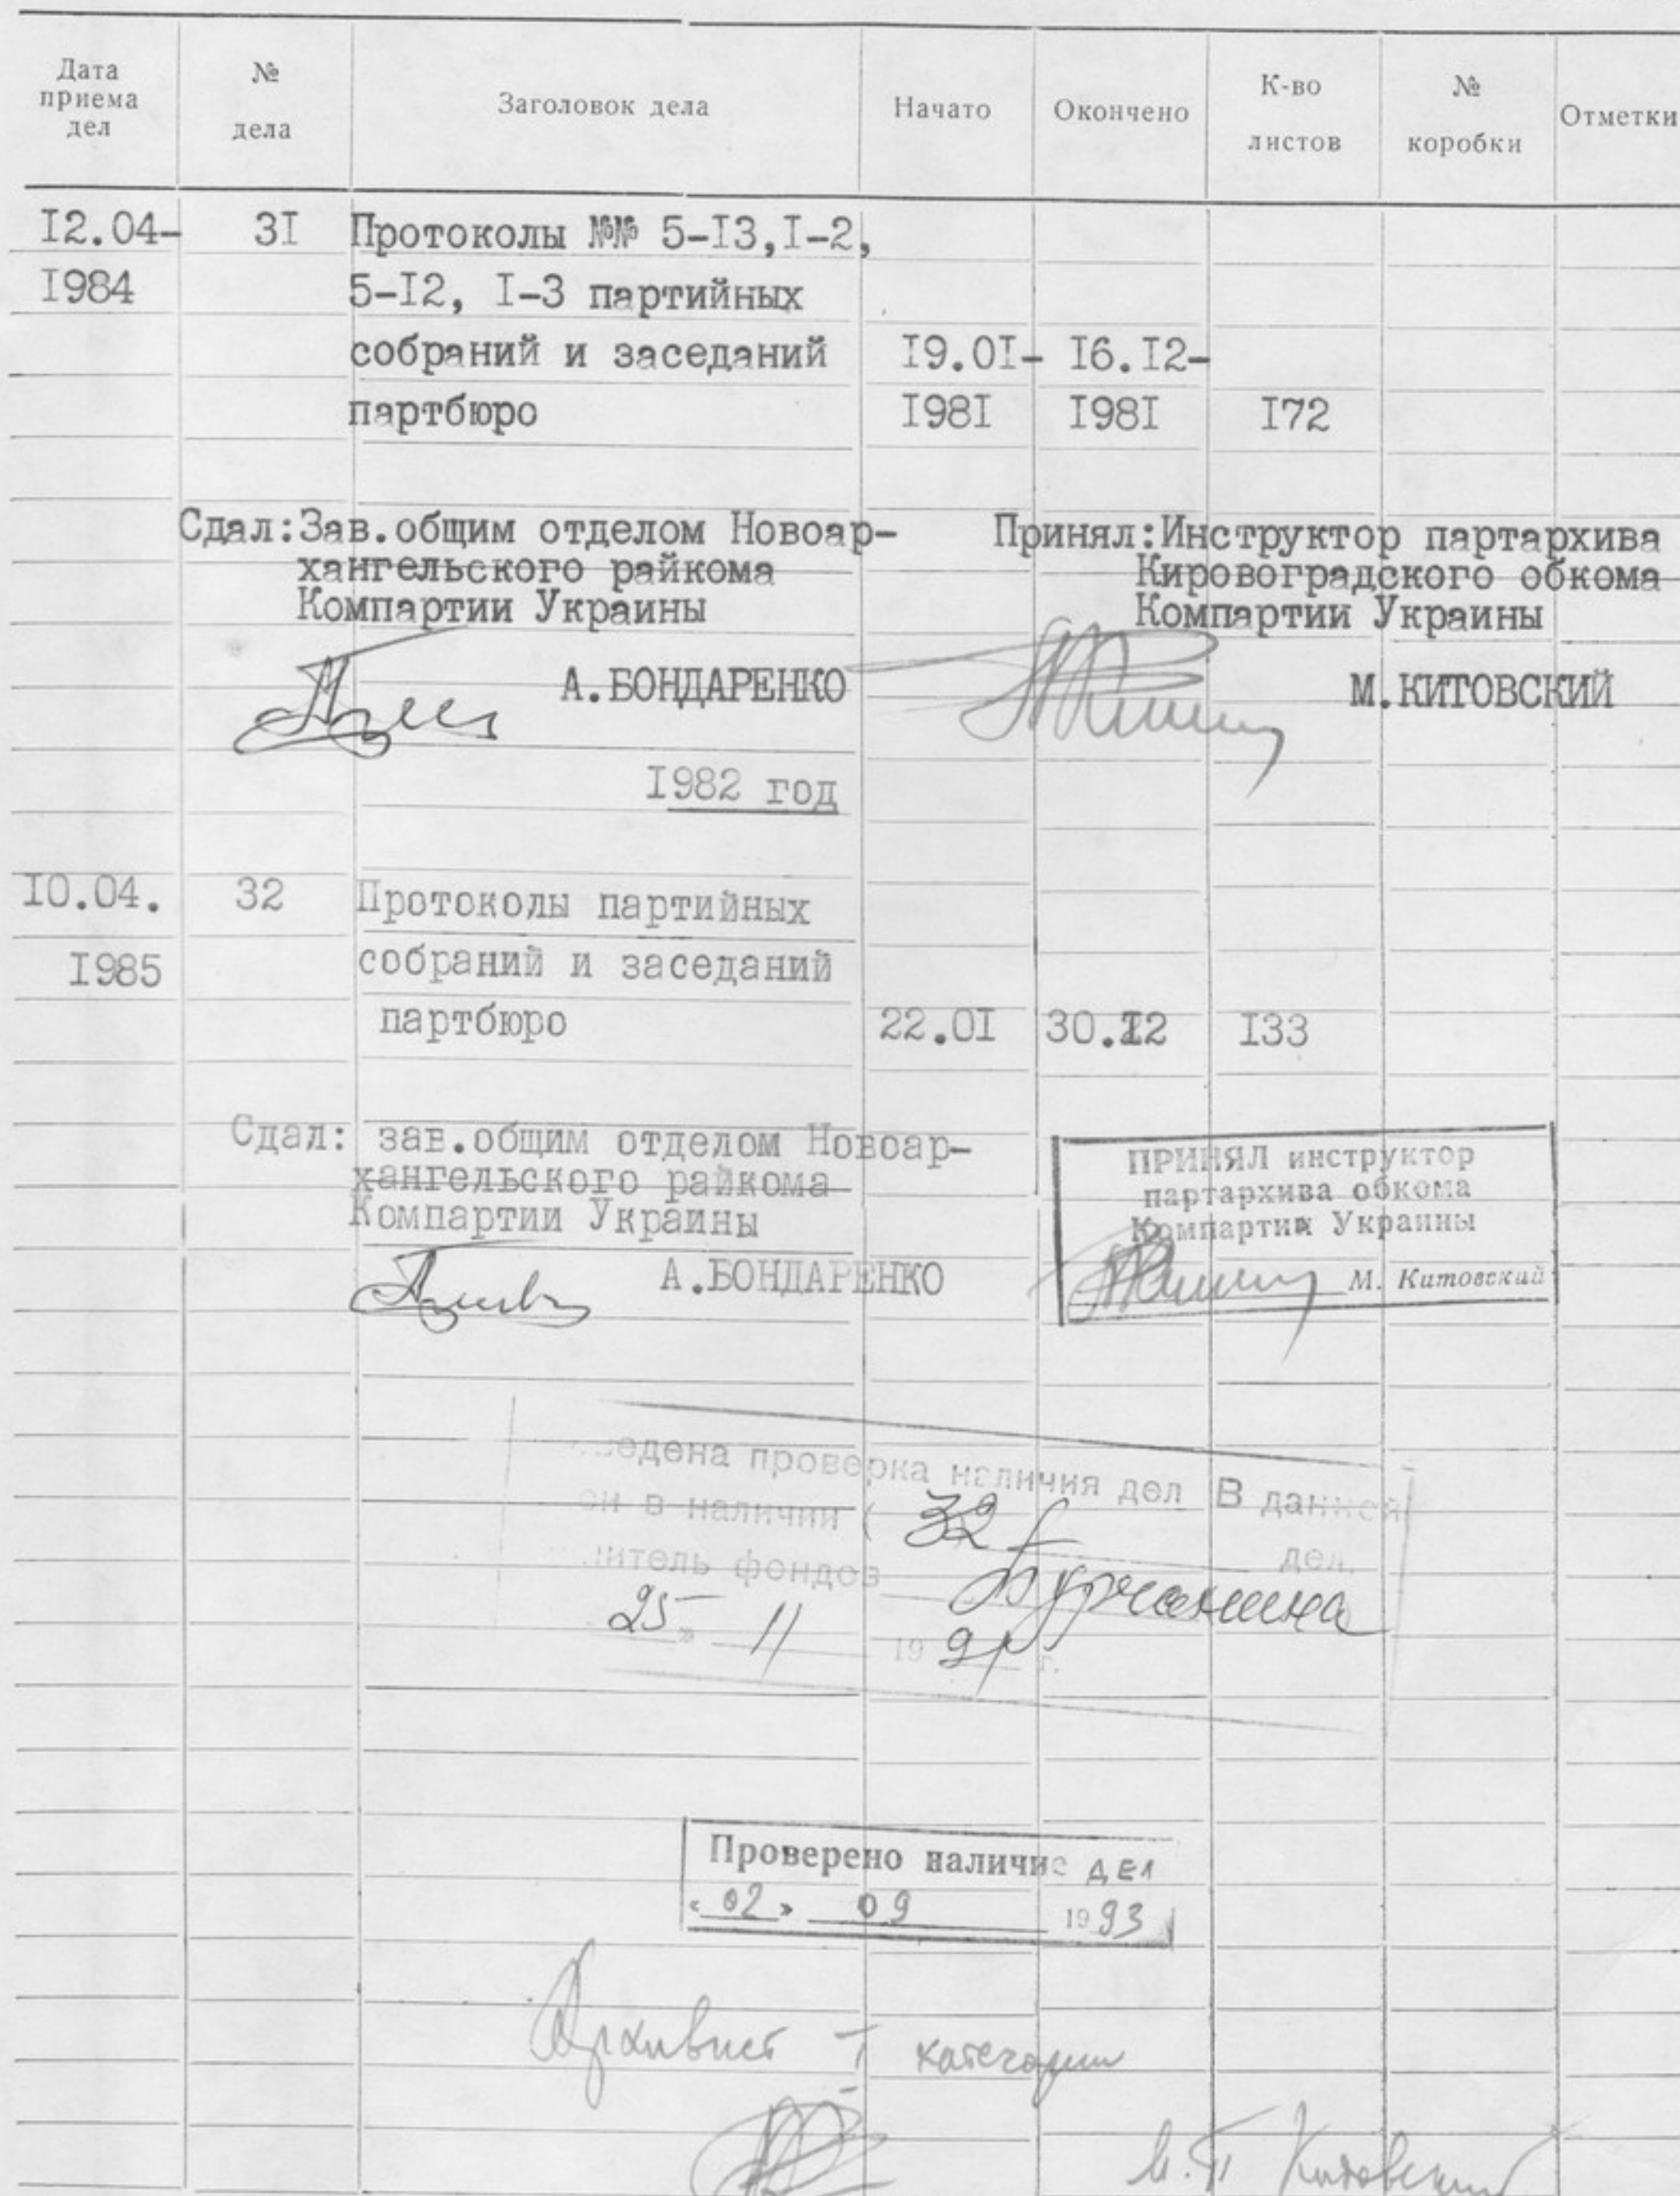 Дата приема дел | № дела | Заголовок дела | Начато | Окончено | К-во листов | № коробки | Отметки
I2.04- 3I Протоколы №№ 5-I3,I-2,
I984 5-I2, I-3 партийных
собраний и заседаний I9.0I- I6.I2-
партбюро I98I I98I I72
Сдал:Зав.общим отделом Новоар-
хангельского райкома
Компартии Украины
А.БОНДАРЕНКО
Принял:Инструктор партархива
Кировоградского обкома
Компартии Украины
М.КИТОВСКИЙ
I982 год
I0.04. 32 Протоколы партийных
I985 собраний и заседаний
партбюро 22.0I 30.I2 I33
Сдал: зав.общим отделом Новоар-
хангельского райкома
Компартии Украины
А.БОНДАРЕНКО
ПРИНЯЛ инструктор
партархива обкома
Компартии Украины
М. Китовский
проверка наличия дел В данной
в наличии ( 32
дел.
фондов
25 » 11 19 91 г.
Проверено наличие дел
« 02 » 09 1993
Архивист I категории
М.П Китовский